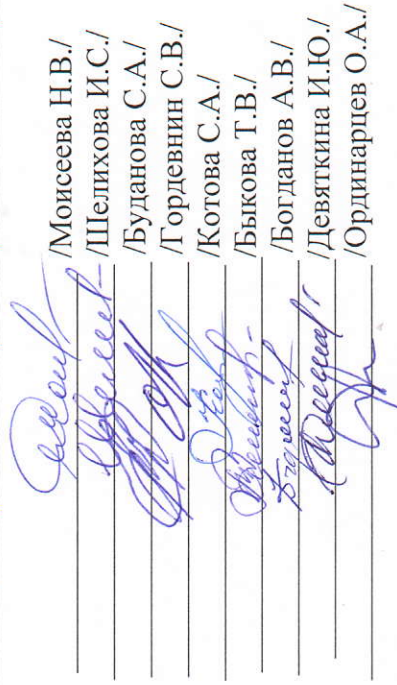 /Моисеева Н.В./
/Шелихова И.С./
/Буданова С.А./
/Гордевнин С.В./
/Котова С.А./
/Быкова Т.В./
/Богданов А.В./
/Девяткина И.Ю./
/Ординарцев О.А./